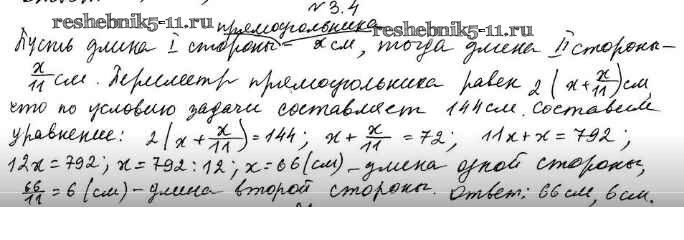 №3.4
reshebnik5-11.ru reshebnik5-11.ru
прямоугольника
Пусть длина I стороны - x см, тогда длина II стороны -
x/11 см. Периметр прямоугольника равен 2(x+x/11) см,
что по условию задачи составляет 144 см. Составим
уравнение: 2(x+x/11)=144; x+x/11=72; 11x+x=792;
12x=792; x=792:12; x=66(см) - длина одной стороны,
66/11=6(см) - длина второй стороны. Ответ: 66см, 6см.